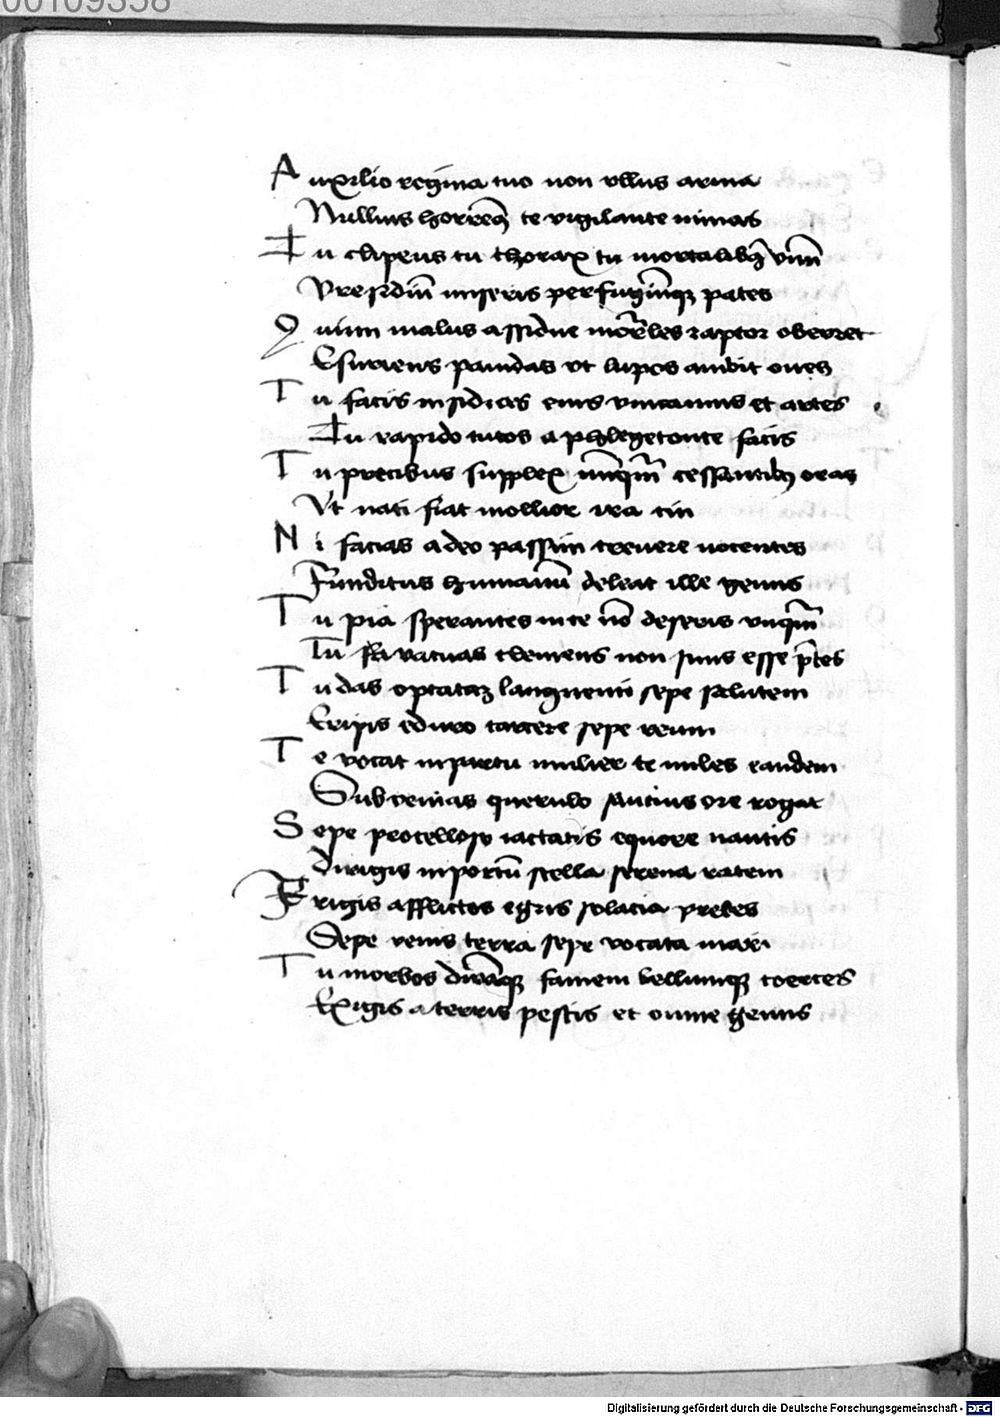 00109358
Auxilio regina tuo non ullus arma
Nullius horreñ te vigilante minas
Tu clipeus tu thorax tu mortalibꝫ vnũ
Presidiũ miseris perfugiũqꝫ pates
Quum malus assidue raptor oberret
Esuriens pauidas vt lupos ambit oues
Tu facis insidias eius vincamus et artes
Tu rapido tutos a phlegetonte facis
Tu precibus supplex nũqm̃ cessantibꝫ oras
Vt nati fiat mollior ira tui
Ni facias adeo passim creuere nocentes
Funditus humanũ deleat ille genus
Tu pia sperantes in te nõ deseris vnqm̃
Tu vacuas clemens non sinis esse p̃ces
Tu das optataꝫ languenti sepe salutem
Eripis e duro carcere sepe reum
Te vocat in partu mulier te miles eandem
Subuenias querulo saucius ore rogat
Sepe procelloso iactatis equore nautis
Dirigis in portũ stella serena ratem
Erigis afflictos egris solacia prebes
Sepe venis terra sepe vocata mari
Tu morbos dirãqꝫ famem bellumqꝫ coerces
Exigis a terris pestis et omne genus
Digitalisierung gefördert durch die Deutsche Forschungsgemeinschaft - DFG